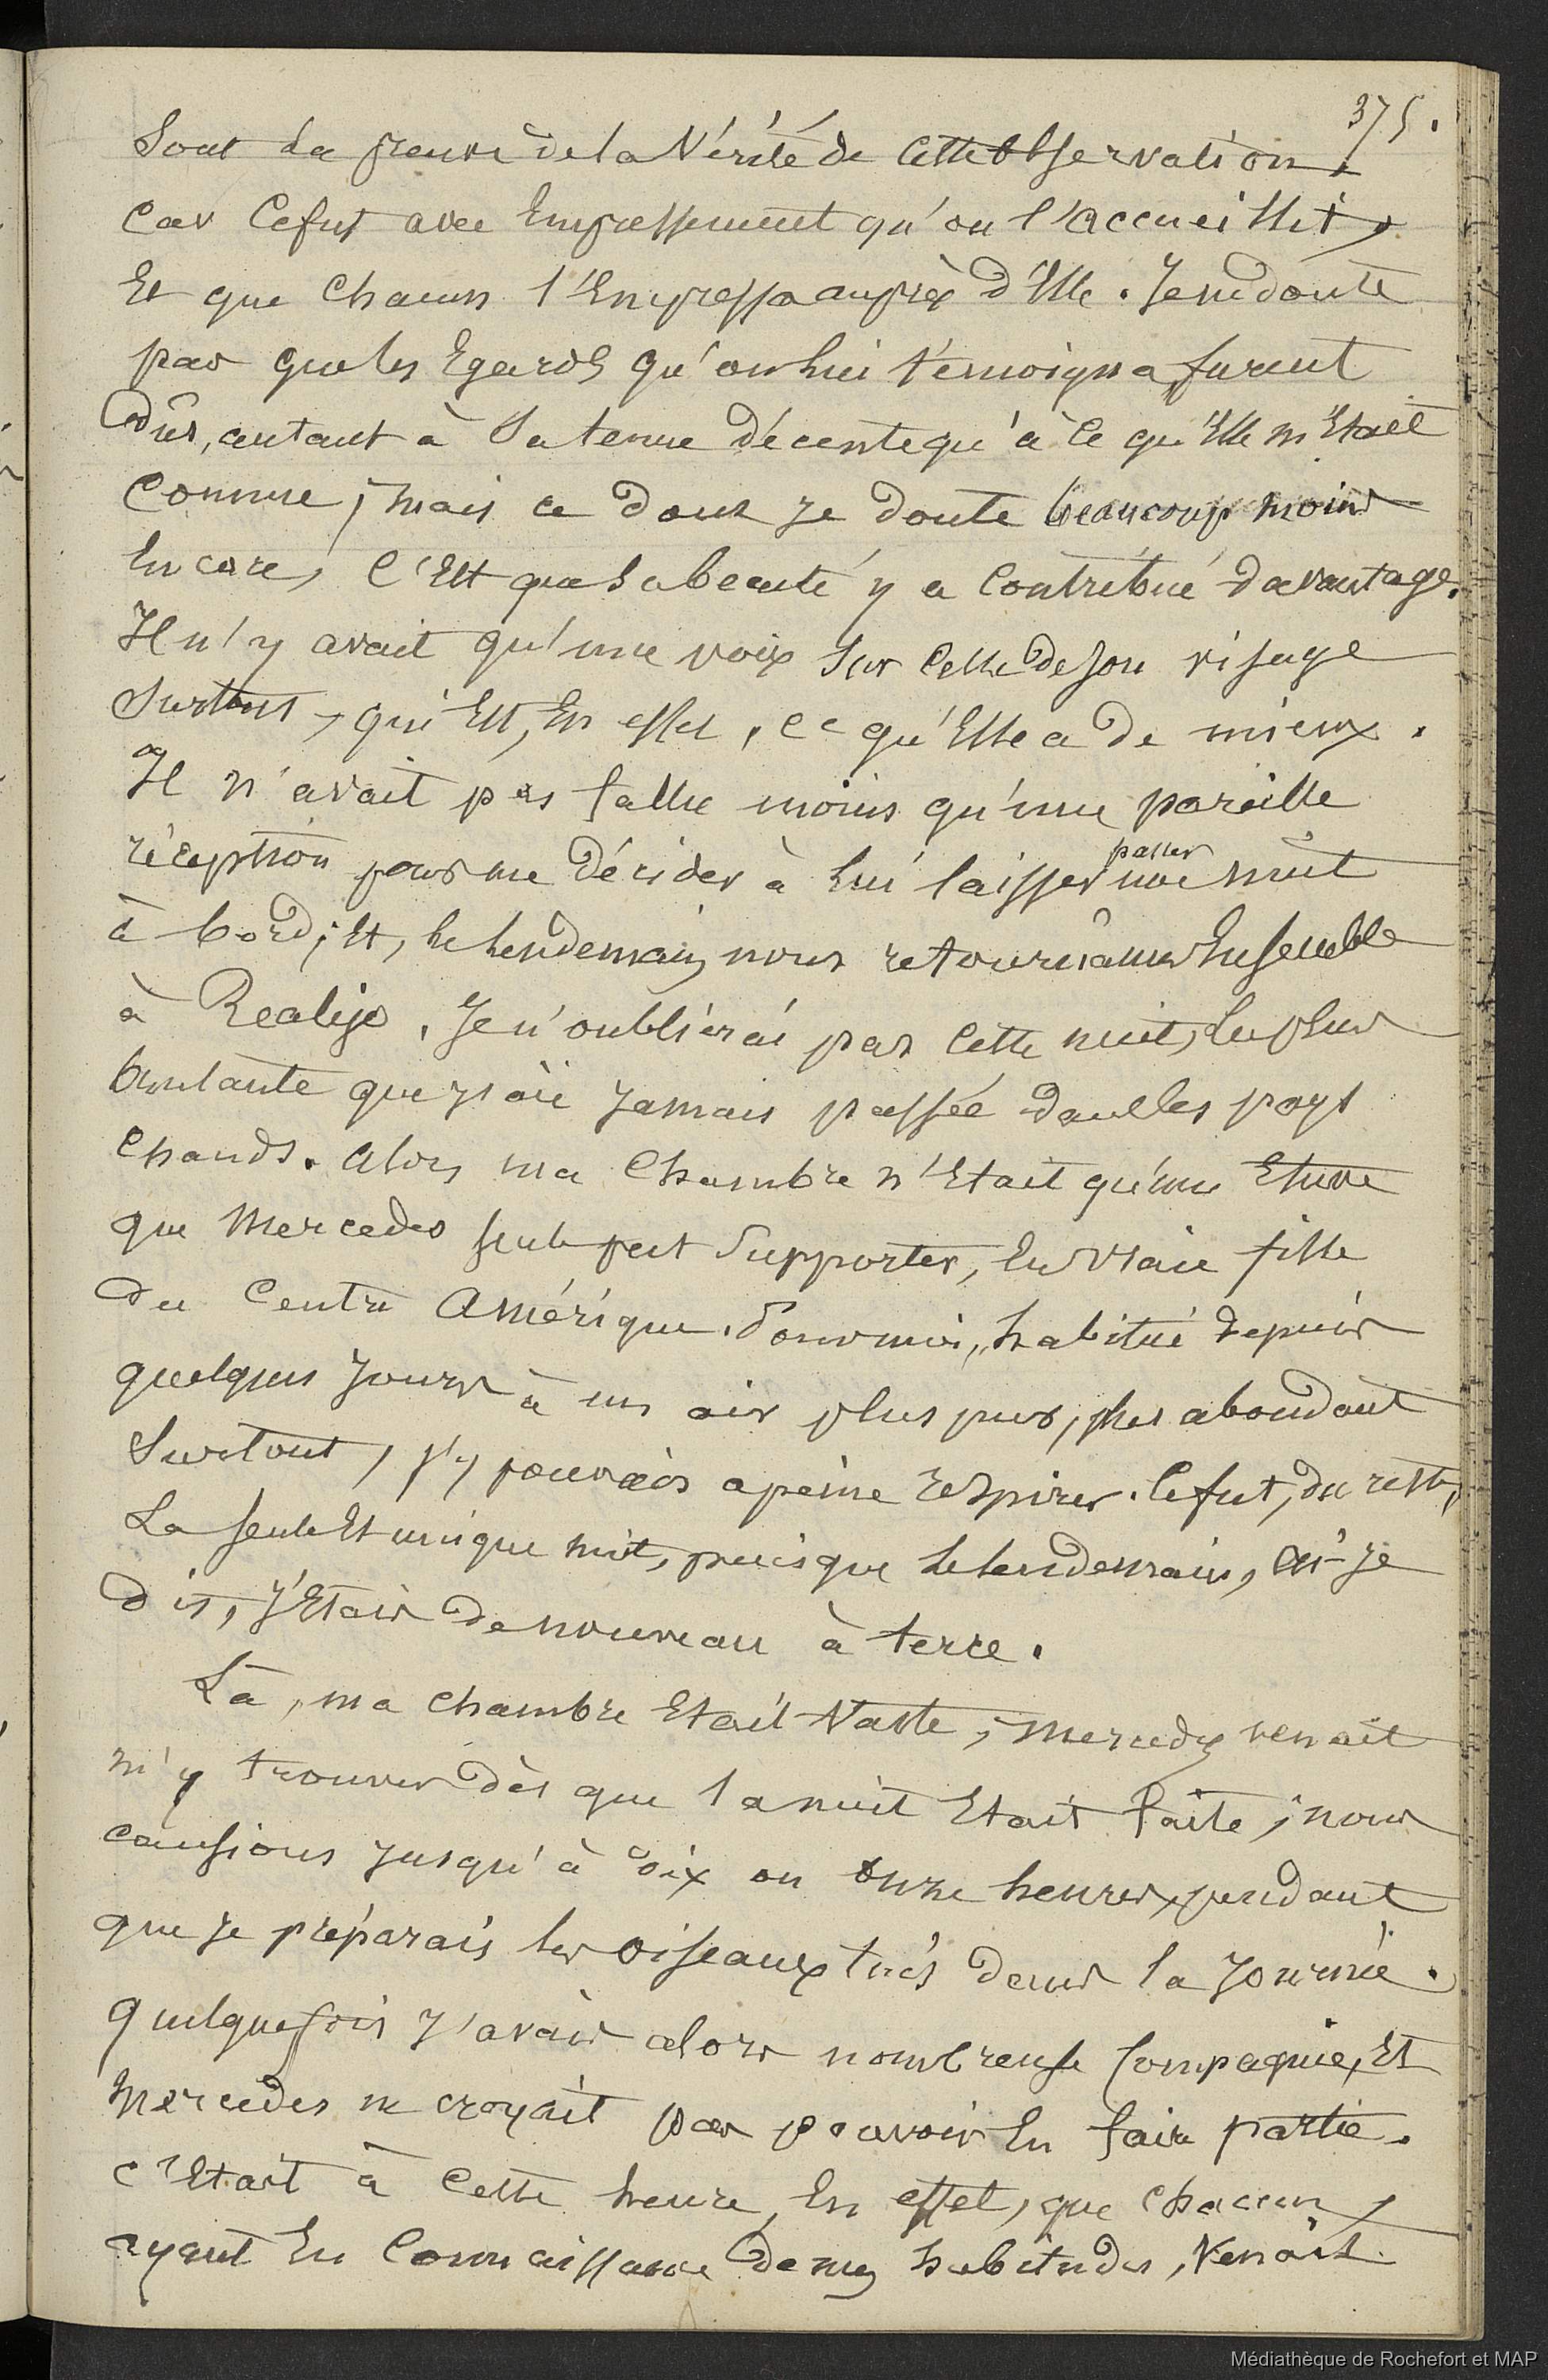 375.
Sont la preuve de la Vérité de cette Observation,
Car Ce fut avec Empressement qu'on l'accueillit,
Et que Chacun s'Empressa auprès d'Elle. Je ne doute
pas que les Egards qu'on lui témoigna furent
dûs, autant à Sa tenue décente qu'à ce qu'Elle m'Etait
Connue ; mais ce dont Je doute beaucoup moins
Encore, C'Est que Sa beauté y a Contribué davantage.
Il n'y avait qu'une voix Sur Celle de Son visage
Surtout, qui Est, En effet, ce qu'Elle a de mieux.
Il n'avait pas fallu moins qu'une pareille
réception pour me décider à lui laisser passer une nuit
à bord ; Et, le lendemain, nous retournâmes Ensemble
à Realejo. Je n'oublierai pas Cette nuit, la plus
brulante que J'aie Jamais passée dans les pays
Chauds. Alors ma Chambre n'Etait qu'une Etuve
que Mercedes seule put Supporter, En vraie fille
du Centre Amérique. Pour moi, habitué depuis
quelques Jours à un air plus pur, plus abondant
Surtout, J'y pouvais apeine respirer. Ce fut, du reste,
La seule Et unique nuit, puisque le lendemain, ai-Je
dit, J'Etais de nouveau à terre.
Là, ma chambre Etait Vaste ; Mercedes venait
m'y trouver dès que la nuit Etait faite ; nous
causions Jusqu'à dix ou onze heures, pendant
que Je préparais les oiseaux tués dans la Journée.
Quelquefois J'avais alors nombreuse Compagnie, Et
Mercedes ne croyait pas pouvoir En faire partie.
C'Etait à Cette heure, En effet, que Chacun,
ayant En Connaissance de mes habitudes, Venait
Médiathèque de Rochefort et MAP